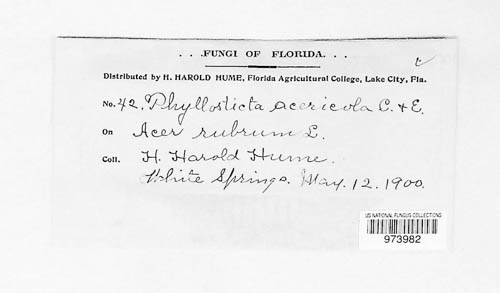 . . .FUNGI OF FLORIDA. . .
Distributed by H. HAROLD HUME, Florida Agricultural College, Lake City, Fla.
No. 42. Phyllosticta acericola C. & E.
On Acer rubrum L.
Coll. H. Harold Hume.
White Springs. May. 12. 1900.
US NATIONAL FUNGUS COLLECTIONS
973982